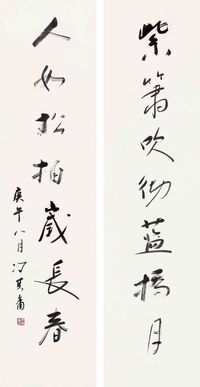 紫箫吹彻蓝桥月
人如松柏岁长春
庚午八月冯其庸